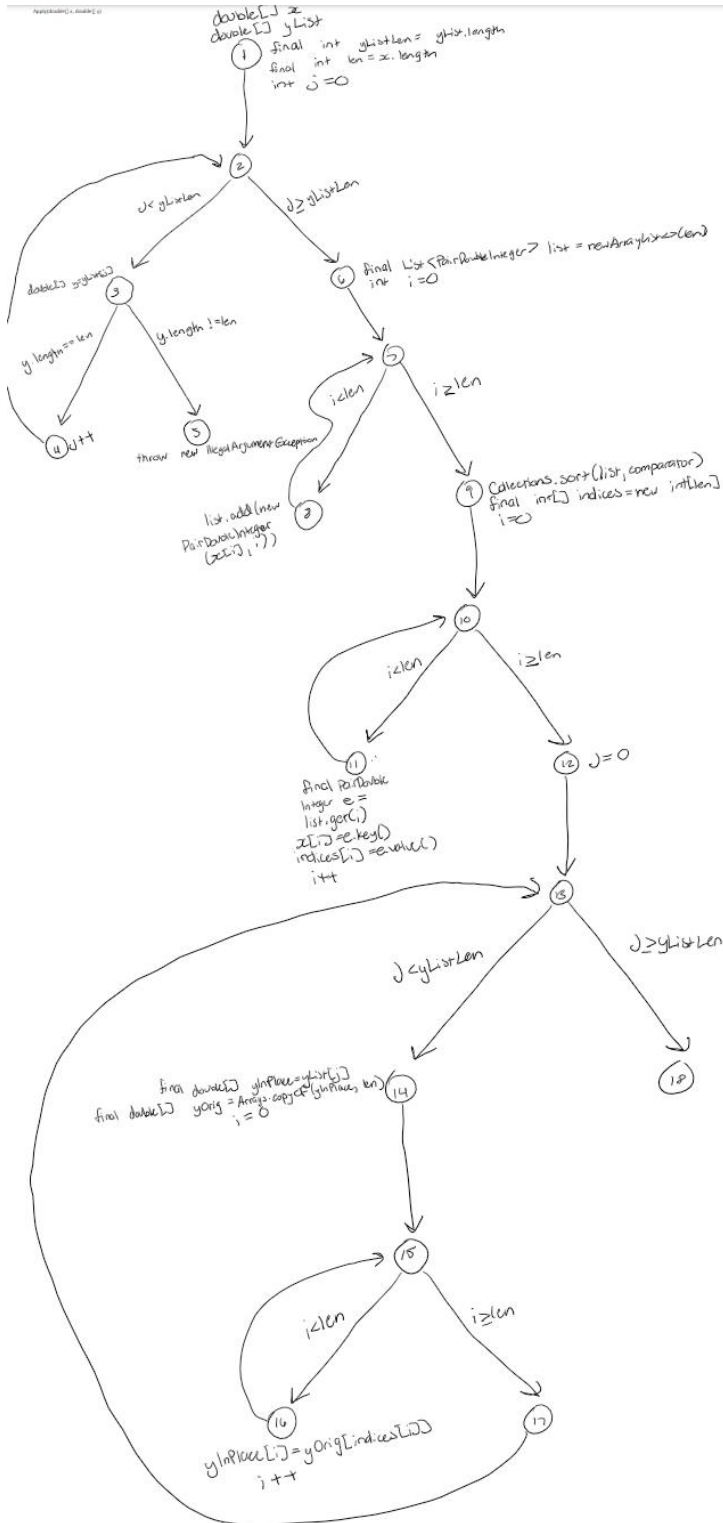 Apply(double[] x, double[] y)
double[] x
double[] yList
1
final int yListLen = yList.length
final int len = x.length
int j=0
2
j< yListLen
j≥yListLen
double[] y=yList[j]
3
6
final List<PairDoubleInteger> list = newArrayList<>(len)
int i=0
y.length==len
y.length !=len
7
4
j++
5
throw new IllegalArgumentException
i<len
i≥len
list.add(new
PairDoubleInteger
(x[i], i))
8
9
Collections.sort(list, comparator)
final int[] indices=new int[len]
i=0
10
i<len
i≥len
11
final PairDouble
Integer e =
list.get(i)
x[i]=e.key()
indices[i]=e.value()
i++
12
j=0
13
j<yListLen
j≥yListLen
final double[] yInPlace=yList[j]
final double[] yOrig = Arrays.copyOf(yInPlace, len)
i = 0
14
18
15
i<len
i≥len
16
yInPlace[i]=yOrig[indices[i]]
i++
17